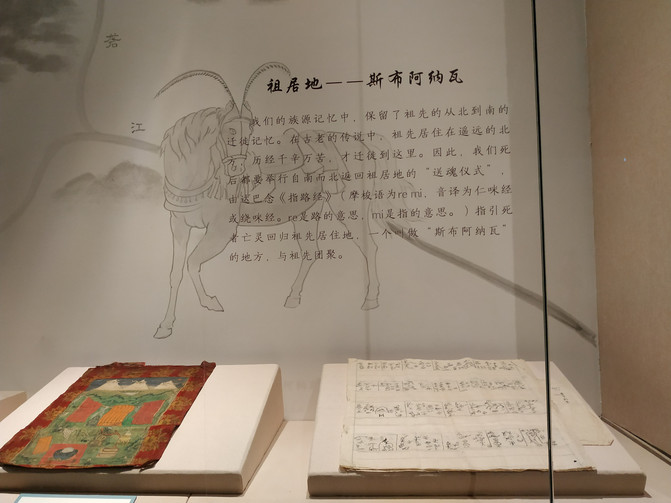 若
江
祖居地——斯布阿纳瓦
我们的族源记忆中，保留了祖先的从北到南的
迁徙记忆。在古老的传说中，祖先居住在遥远的北
方，历经千辛万苦，才迁徙到这里。因此，我们死
后都要举行自南而北返回祖居地的“送魂仪式”，
由达巴念《指路经》（摩梭语为re mi，音译为仁咪经
或绕咪经。re是路的意思，mi是指的意思。）指引死
者亡灵回归祖先居住地，一个叫做“斯布阿纳瓦”
的地方，与祖先团聚。